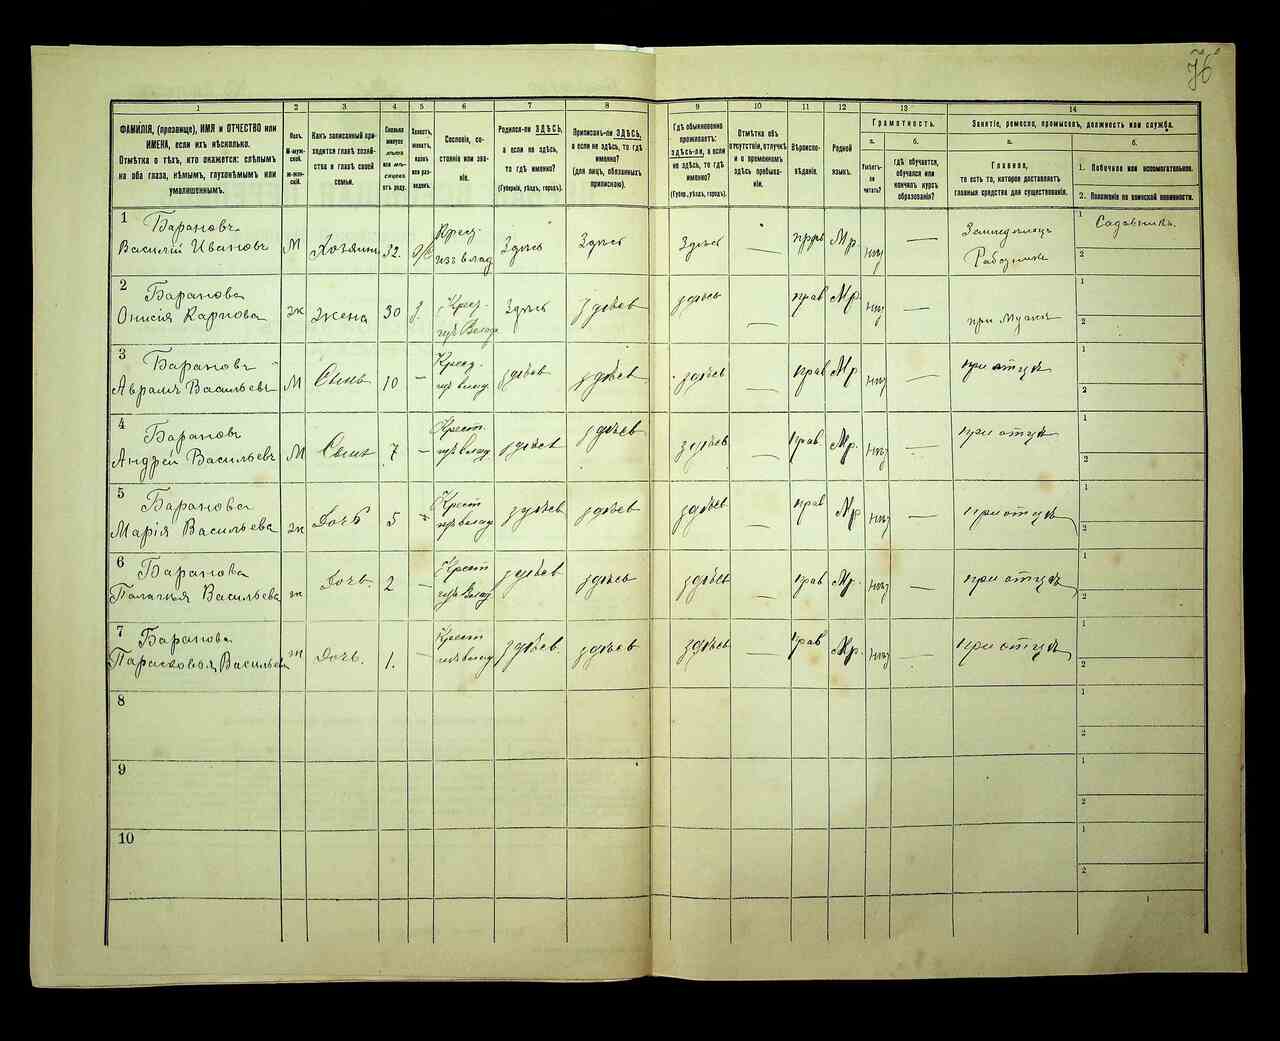 76
1 2 3 4 5 6 7 8 9 10 11 12 13 14
ФАМИЛІЯ, (прозвище), ИМЯ и ОТЧЕСТВО или
ИМЕНА, если ихъ нѣсколько.
Отмѣтка о тѣхъ, кто окажется: слѣпымъ
на оба глаза, нѣмымъ, глухонѣмымъ или
умалишеннымъ.
Полъ.
М-мужской.
ж-женскій.
Какъ записанный приходится главѣ хозяйства и главѣ своей семьи.
Сколько минуло лѣтъ или мѣсяцевъ отъ роду.
Холостъ, женатъ, вдовъ или разведенъ.
Сословіе, состояніе или званіе.
Родился-ли ЗДѢСЬ,
а если не здѣсь,
то гдѣ именно?
(Губернія, уѣздъ, городъ).
Приписанъ-ли ЗДѢСЬ,
а если не здѣсь, то гдѣ
именно?
(для лицъ, обязанныхъ
припискою).
Гдѣ обыкновенно
проживаетъ:
здѣсь-ли, а если
не здѣсь, то гдѣ
именно?
(Губер., уѣздъ, городъ).
Отмѣтка объ
отсутствіи, отлучкѣ
и о временномъ
здѣсь пребываніи.
Вѣроисповѣданіе.
Родной
языкъ.
Грамотность.
а. б.
Умѣетъ-ли читать?
гдѣ обучается,
обучался или
кончилъ курсъ
образованія?
Занятіе, ремесло, промыселъ, должность или служба.
а. б.
Главное,
то есть то, которое доставляетъ
главныя средства для существованія.
1. Побочное или вспомогательное.
2. Положеніе по воинской повинности.
1 Барановъ
Василій Ивановъ М Хозяинъ 32. Крес. из влад Здѣсь Здѣсь Здѣсь — М.р. нѣт — Земледѣлецъ
Работникъ
1 Садовникъ.
2
2 Баранова
Онисія Карпова ж жена 30 з. Крес. изъ Влад Здѣсь здѣсь здѣсь — прав М.р. нѣт — при Мужѣ
1
2
3 Барановъ
Аврамъ Васильевъ М Сынъ 10 — Крест. изъ влад здѣсь здѣсь здѣсь — прав М.р нѣт — при отцѣ
1
2
4 Барановъ
Андрей Васильевъ М Сынъ 7 — Крест. изъ влад здѣсь здѣсь здѣсь — прав М.р. нѣт — при отцѣ
1
2
5 Баранова
Марія Васильева ж Дочь 5 — Крест изъ влад здѣсь здѣсь здѣсь — прав М.р нѣт — при отцѣ
1
2
6 Баранова
Палагнія Васильева ж Дочь 2 — Крест изъ Влад здѣсь здѣсь здѣсь — прав М.р. нѣт — при отцѣ
1
2
7 Баранова
Парасковья Васильева ж Дочь. 1. — Крест изъ влад здѣсь. здѣсь здѣсь — прав М.р. нѣт — при отцѣ
1
2
8
1
2
9
1
2
10
1
2